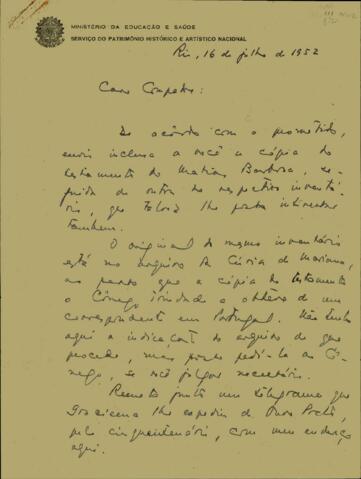 MINISTÉRIO DA EDUCAÇÃO E SAÚDE
SERVIÇO DO PATRIMÔNIO HISTÓRICO E ARTÍSTICO NACIONAL
Rio, 16 de julho de 1952
Caro Compadre:
De acôrdo com o prometido,
envio inclusa a você a cópia do
testamento de Matias Barbosa, se-
guida de outra do respectivo inventá-
rio, que talvez lhe possa interessar
tambem.
O original do mesmo inventário
está no arquivo da Cúria de Mariana,
ao passo que a cópia do testamento
o Cônego Trindade a obteve de um
correspondente em Portugal. Não tenho
aqui a indicação do arquivo de que
procede, mas posso pedi-la ao Cô-
nego, se você julgar necessário.
Remeto junto um telegrama que
Graciema lhe expediu de Ouro Preto,
pelo cinquentenário, com meu endereço
aqui.